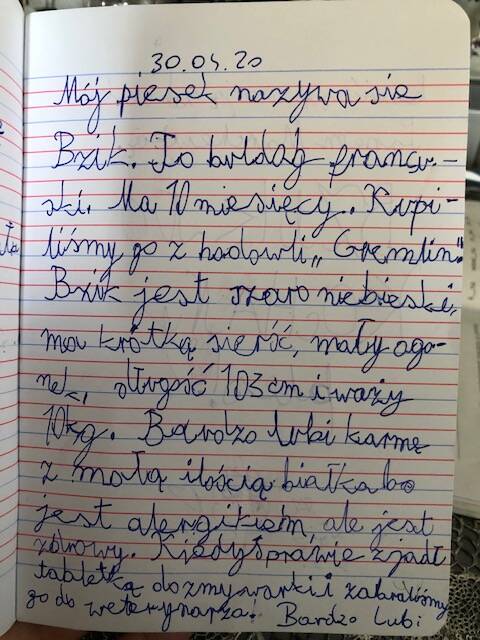 30.04.20
Mój piesek nazywa sie
Bzik. To buldog francu-
ski. Ma 10 miesięcy. Kupi-
liśmy go z hodowli „Gremlin."
Bzik jest szaro niebieski,
ma krótką sierść, mały ogo-
nek, długość 103 cm i waży
10kg. Bardzo lubi karmę
z małą ilością białka bo
jest alergikiem, ale jest
zdrowy. Kiedyś prawie zjadł
tabletkę do zmywarki i zabraliśmy
go do weterynarza. Bardzo Lubi